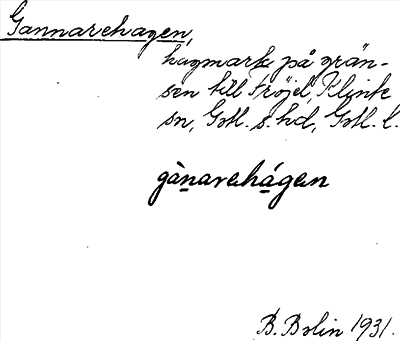 Gannarehagen,
hagmark på grän-
sen till Fröjel, Klinte
sn, Gotl. s. hd, Gotl. l.
gànarehágen
B. Bolin 1931.